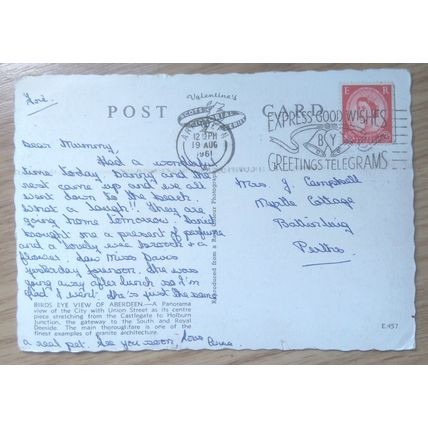 Valentine's
POST CARD
ABERDEEN
12 15 PM
19 AUG
1961
EXPRESS GOOD WISHES
BY
GREETINGS TELEGRAMS
E R
Dear Mummy,
Had a wonderful
time today. Danny and the
rest came up and we all
went down to the beach.
What a laugh!! They are
going home tomorrow. David
brought me a present of perfume
and a lovely wee brooch + a
flower. Saw Miss Davis
yesterday forenoon. She was
going away after lunch so I'm
glad I went. She's just the same
a real pet. See you soon, Love Anne
Mrs. J. Campbell
Myrtle Cottage
Perths.
BIRDS EYE VIEW OF ABERDEEN.—A Panorama
view of the City with Union Street as its centre
piece stretching from the Castlegate to Holburn
Junction, the gateway to the South and Royal
Deeside. The main thoroughfare is one of the
finest examples of granite architecture.
Reproduced from a Real Colour Photograph
E.457